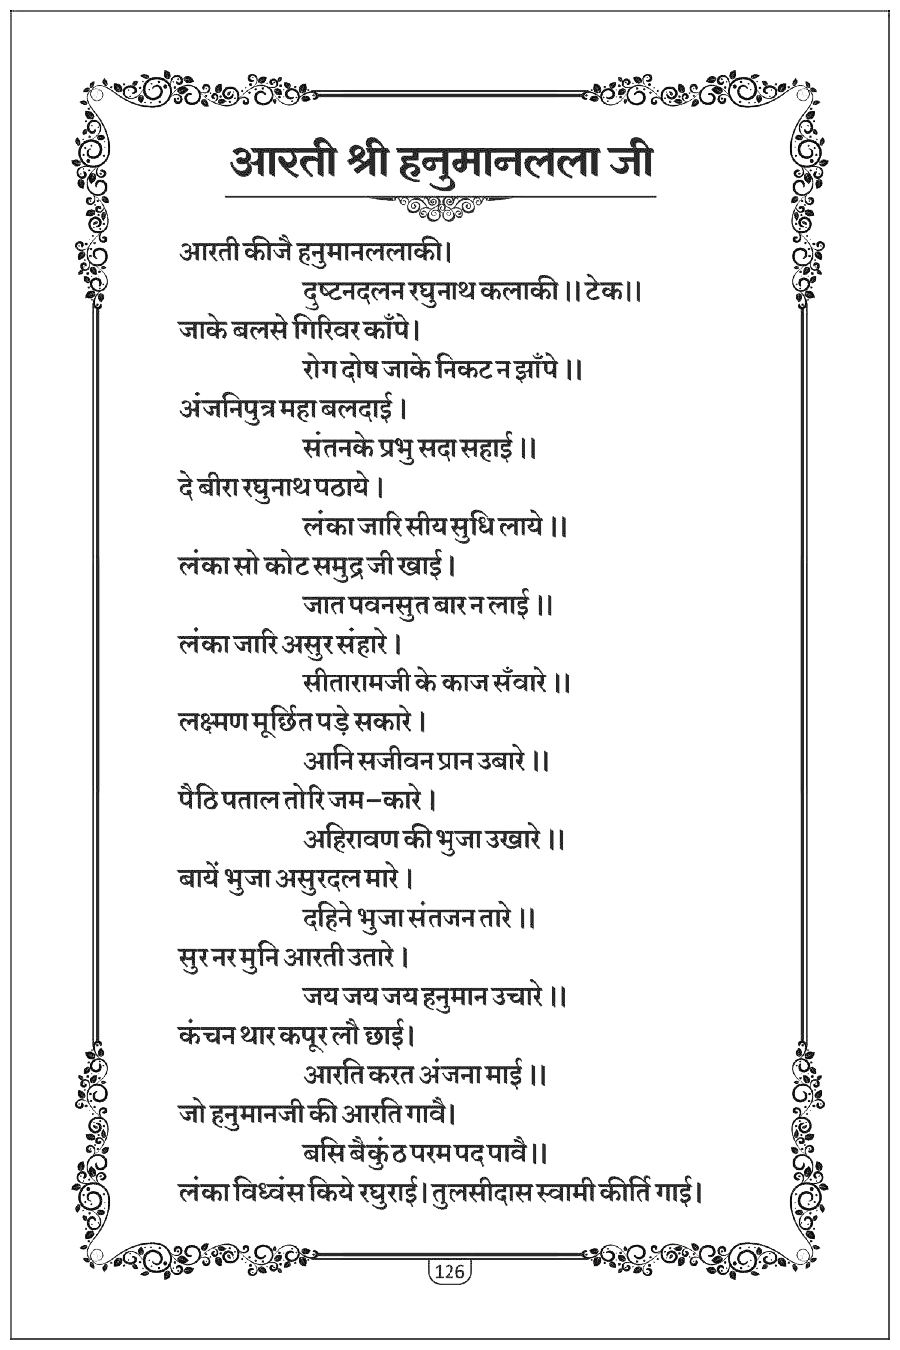 आरती श्री हनुमानलला जी
आरती कीजै हनुमानललाकी।
दुष्टनदलन रघुनाथ कलाकी।। टेक।।
जाके बलसे गिरिवर काँपे।
रोग दोष जाके निकट न झाँपे।।
अंजनिपुत्र महा बलदाई।
संतनके प्रभु सदा सहाई।।
दे बीरा रघुनाथ पठाये।
लंका जारि सीय सुधि लाये।।
लंका सो कोट समुद्र जी खाई।
जात पवनसुत बार न लाई।।
लंका जारि असुर संहारे।
सीतारामजी के काज सँवारे।।
लक्ष्मण मूर्छित पड़े सकारे।
आनि सजीवन प्रान उबारे।।
पैठि पताल तोरि जम–कारे।
अहिरावण की भुजा उखारे।।
बायें भुजा असुरदल मारे।
दहिने भुजा संतजन तारे।।
सुर नर मुनि आरती उतारे।
जय जय जय हनुमान उचारे।।
कंचन थार कपूर लौ छाई।
आरति करत अंजना माई।।
जो हनुमानजी की आरति गावै।
बसि बैकुंठ परम पद पावै।।
लंका विध्वंस किये रघुराई। तुलसीदास स्वामी कीर्ति गाई।
126